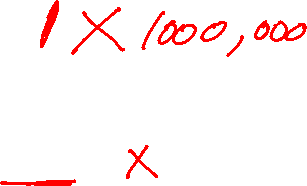 1 X 1000,000
__ x